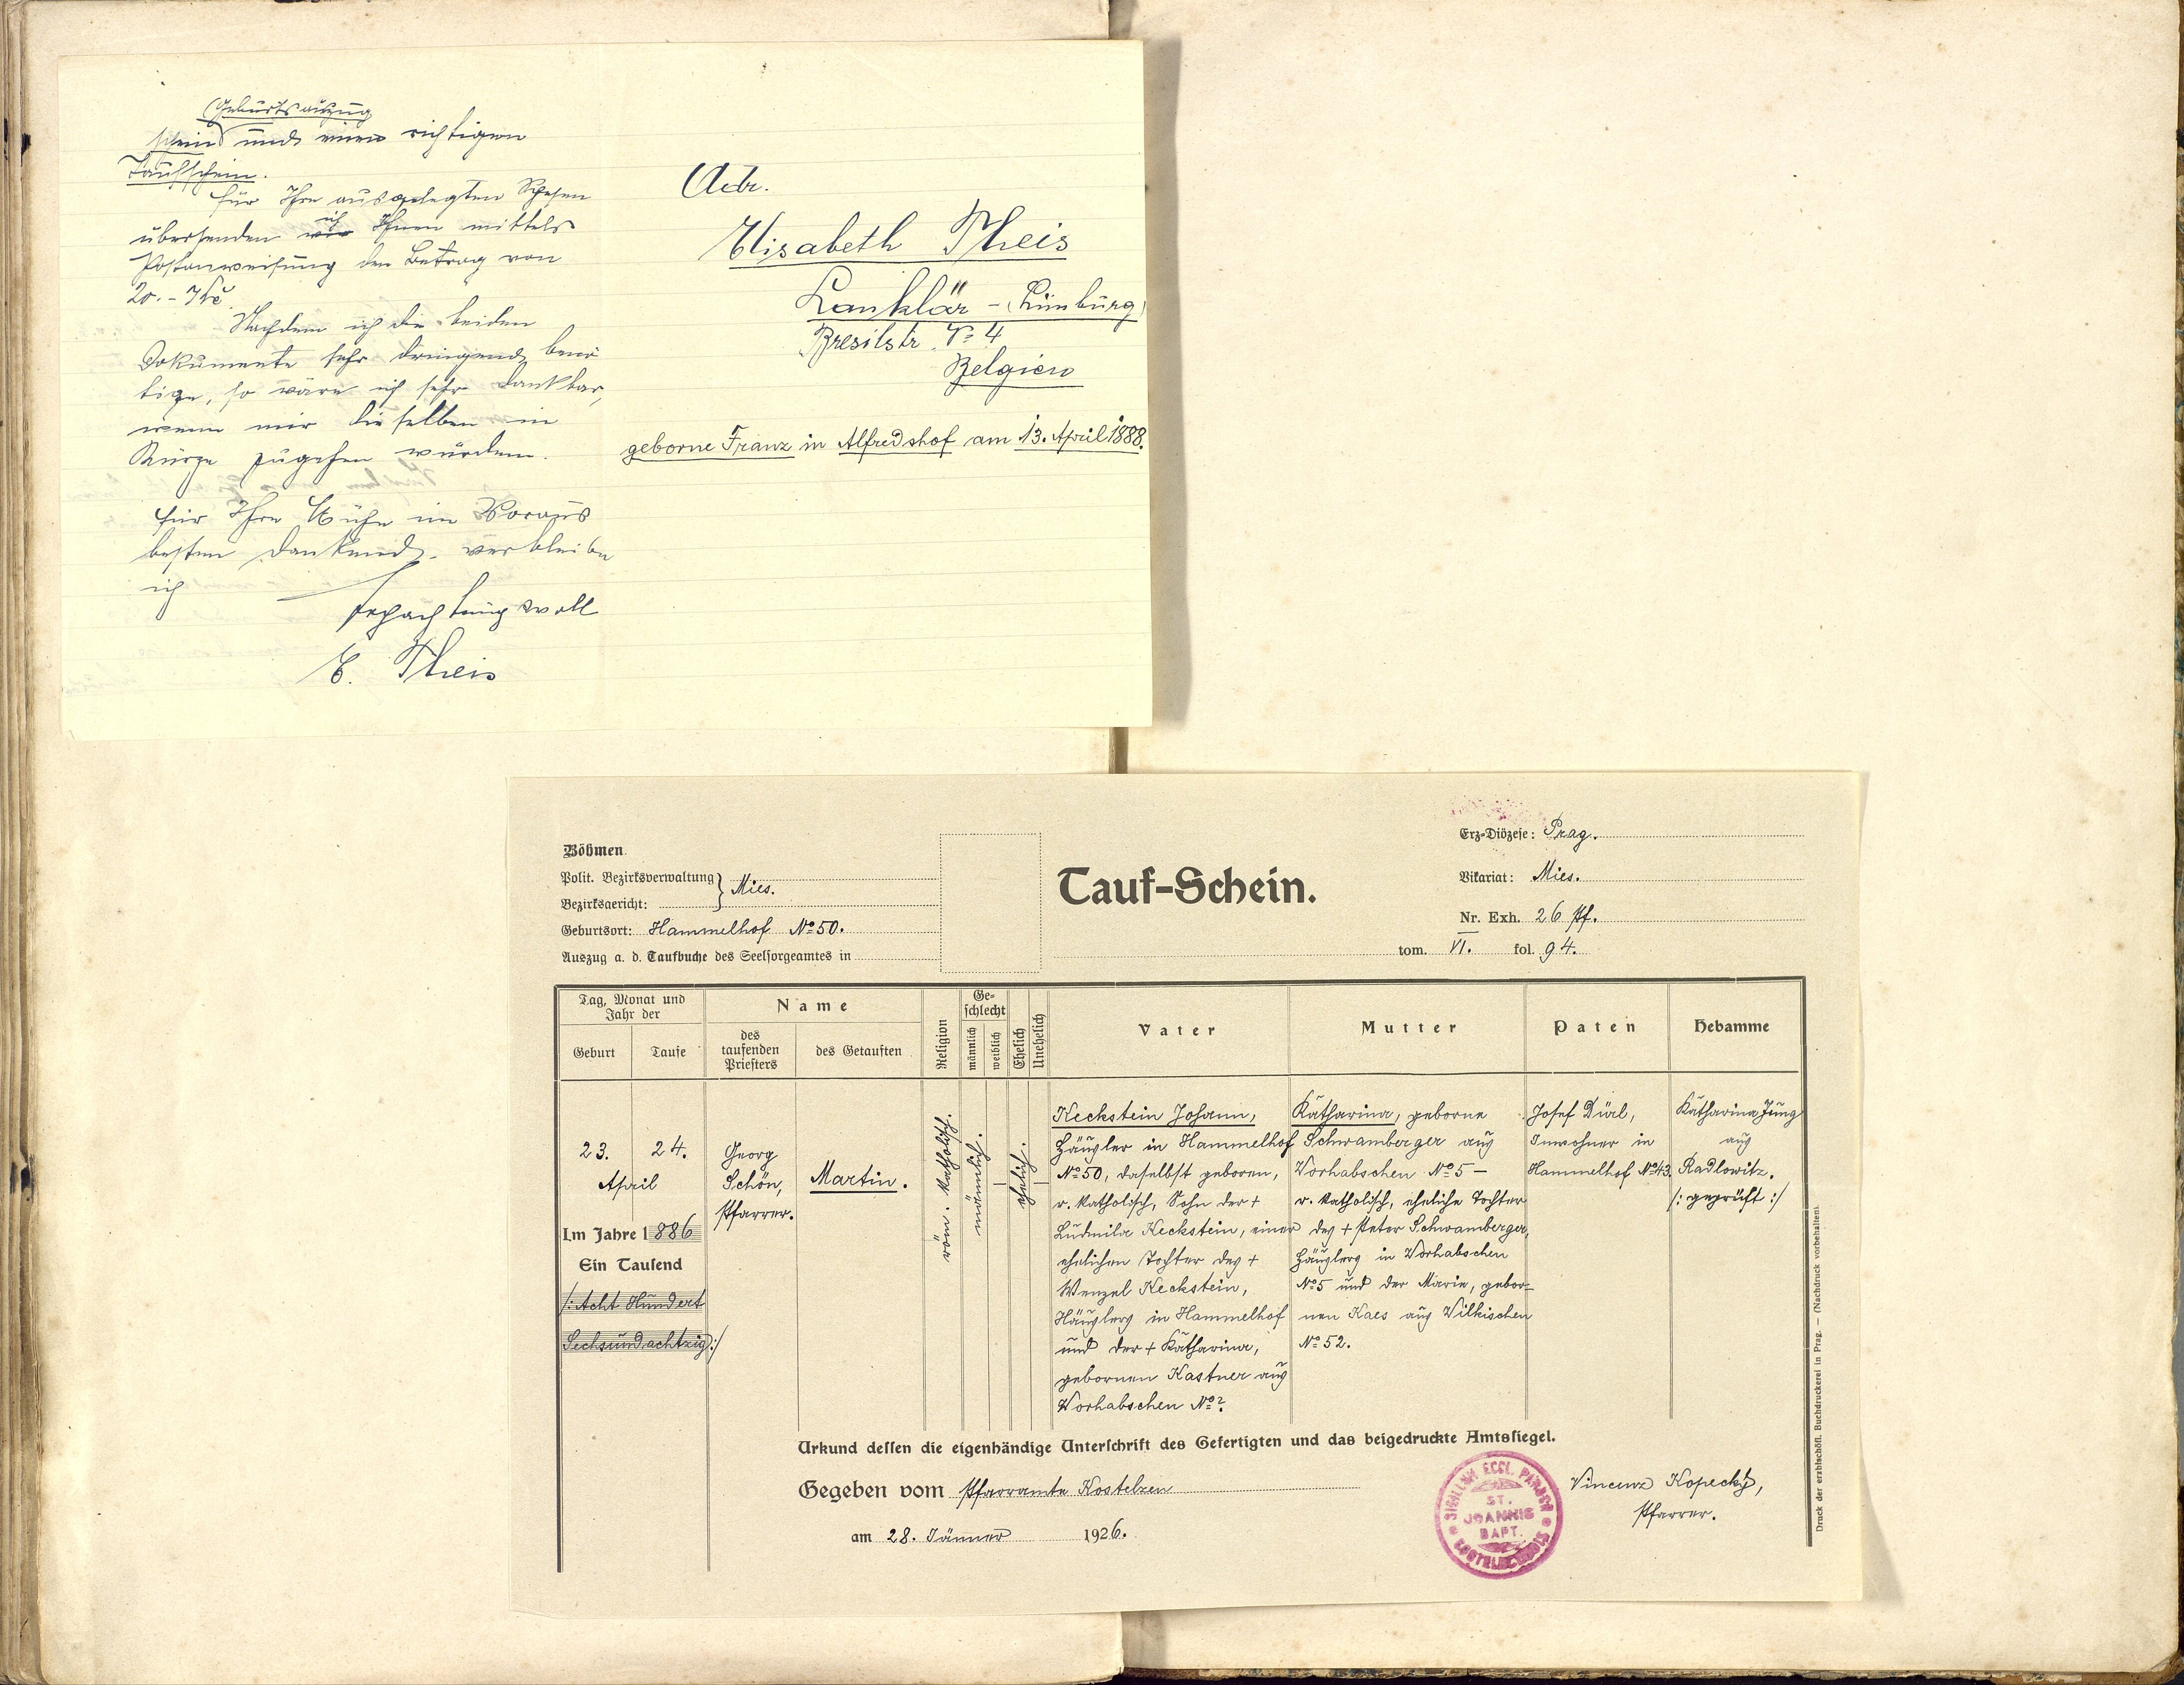 (Geburtsauszug
schein) und einen richtigen
Taufschein.
Für Ihre ausgelegten Spesen
übersenden wir ich Ihnen mittels
Postanweisung den Betrag von
20.- Kč.
Nachdem ich die beiden
Dokumente sehr dringend benö
tige, so wäre ich sehr dankbar,
wenn mir dieselben in
Kürze zugehen würden.
Für Ihre Mühe im Voraus
besten dankend, verbleibe
ich
hochachtungsvoll
E. Theis
Adr.
Elisabeth Theis
Lanklär - (Limburg)
Bresilstr. No 4
Belgien
geborne Franz in Alfredshof am 13. April 1888.
Böhmen
Polit. Bezirksverwaltung } Mies.
Bezirksgericht:
Geburtsort: Hammelhof No 50.
Auszug a. d. Taufbuche des Seelsorgeamtes in
Tauf-Schein.
Erz-Diözese: Prag.
Vikariat: Mies.
Nr. Exh. 26 Pf.
tom. VI. fol. 94.
Tag, Monat und
Jahr der
Geburt
Taufe
Name
des
taufenden
Priesters
des Getauften
Religion
Ge-
schlecht
männlich
weiblich
Ehelich
Unehelich
Vater
Mutter
Paten
Hebamme
23. 24.
April
Im Jahre 1886
Ein Tausend
/: Acht Hundert
Sechsundachtzig :/
Georg
Schön,
Pfarrer.
Martin.
röm. katholisch.
männlich.
ehelich.
Keckstein Johann,
Häusler in Hammelhof
No 50, daselbst geboren,
r. katholisch, Sohn der +
Ludmila Keckstein, einer
ehelichen Tochter des +
Wenzel Keckstein,
Häuslers in Hammelhof
und der + Katharina,
gebornen Kastner aus
Worhabschen No ?.
Katharina, geborne
Schwamberger aus
Worhabschen No 5 –
r. katholisch, eheliche Tochter
des + Peter Schwamberger,
Häuslers in Worhabschen
No 5 und der Marie, gebor=
nen Kaes aus Wilkischen
No 52.
Josef Dürl,
Inwohner in
Hammelhof No 43.
Katharina Jung
aus
Radlowitz.
/: geprüft :/
Urkund dessen die eigenhändige Unterschrift des Gefertigten und das beigedruckte Amtssiegel.
Gegeben vom Pfarramte Kostelzen
am 28. Jänner 1926.
SIGILLUM ECCL. PAROCH
ST.
JOANNIS
BAPT.
Vincenz Kopecký,
Pfarrer.
Druck der erzbischöfl. Buchdruckerei in Prag. — (Nachdruck vorbehalten).